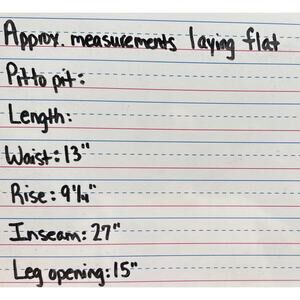 Approx. measurements laying flat
Pit to pit:
Length:
Waist: 13"
Rise: 9 1/4"
Inseam: 27"
Leg opening: 15"